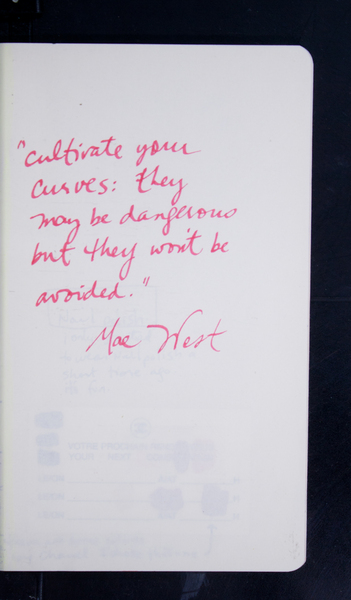 "cultivate your
curves: they
may be dangerous
but they won't be
avoided."
Mae West